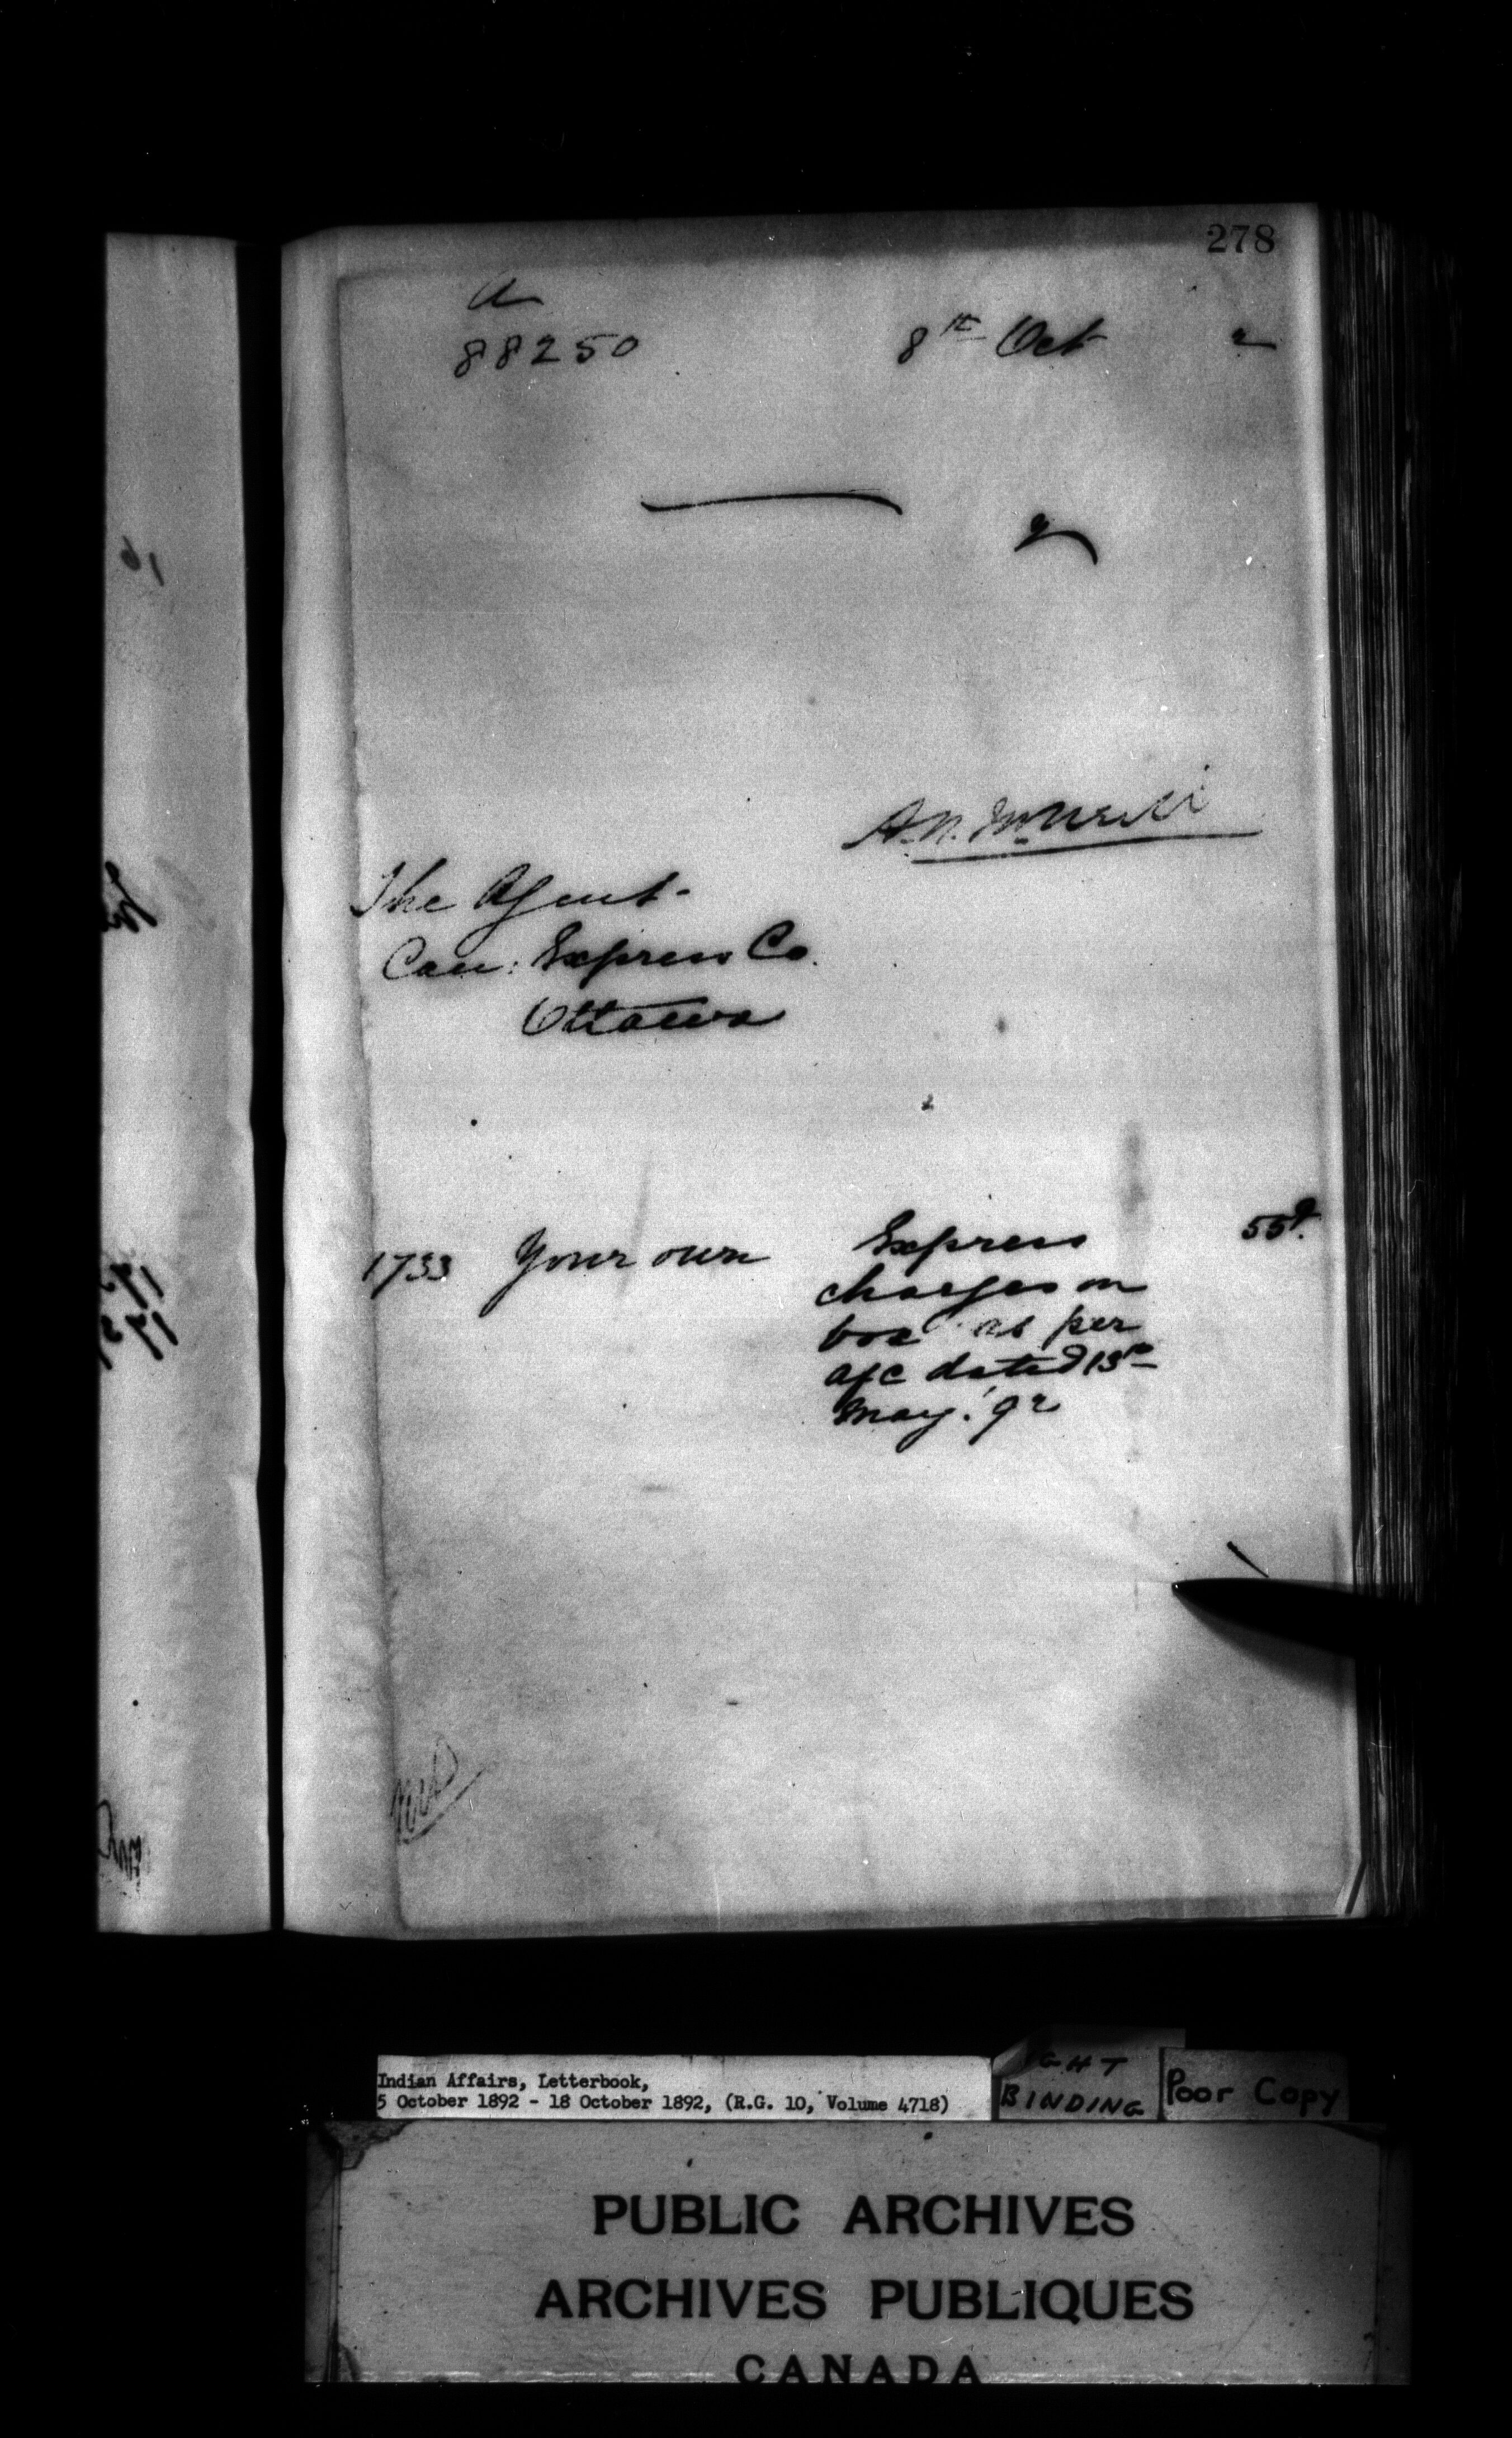 278
a
88250
8th Oct 2
y
A.N. McNeill
The Agent
Can: Express Co.
Ottawa
1733 Your own Express 55¢
charges on
box as per
a/c dated 13th
May. '92
Indian Affairs, Letterbook,
5 October 1892 - 18 October 1892, (R.G. 10, Volume 4718)
BINDING
Poor Copy
PUBLIC ARCHIVES
ARCHIVES PUBLIQUES
CANADA